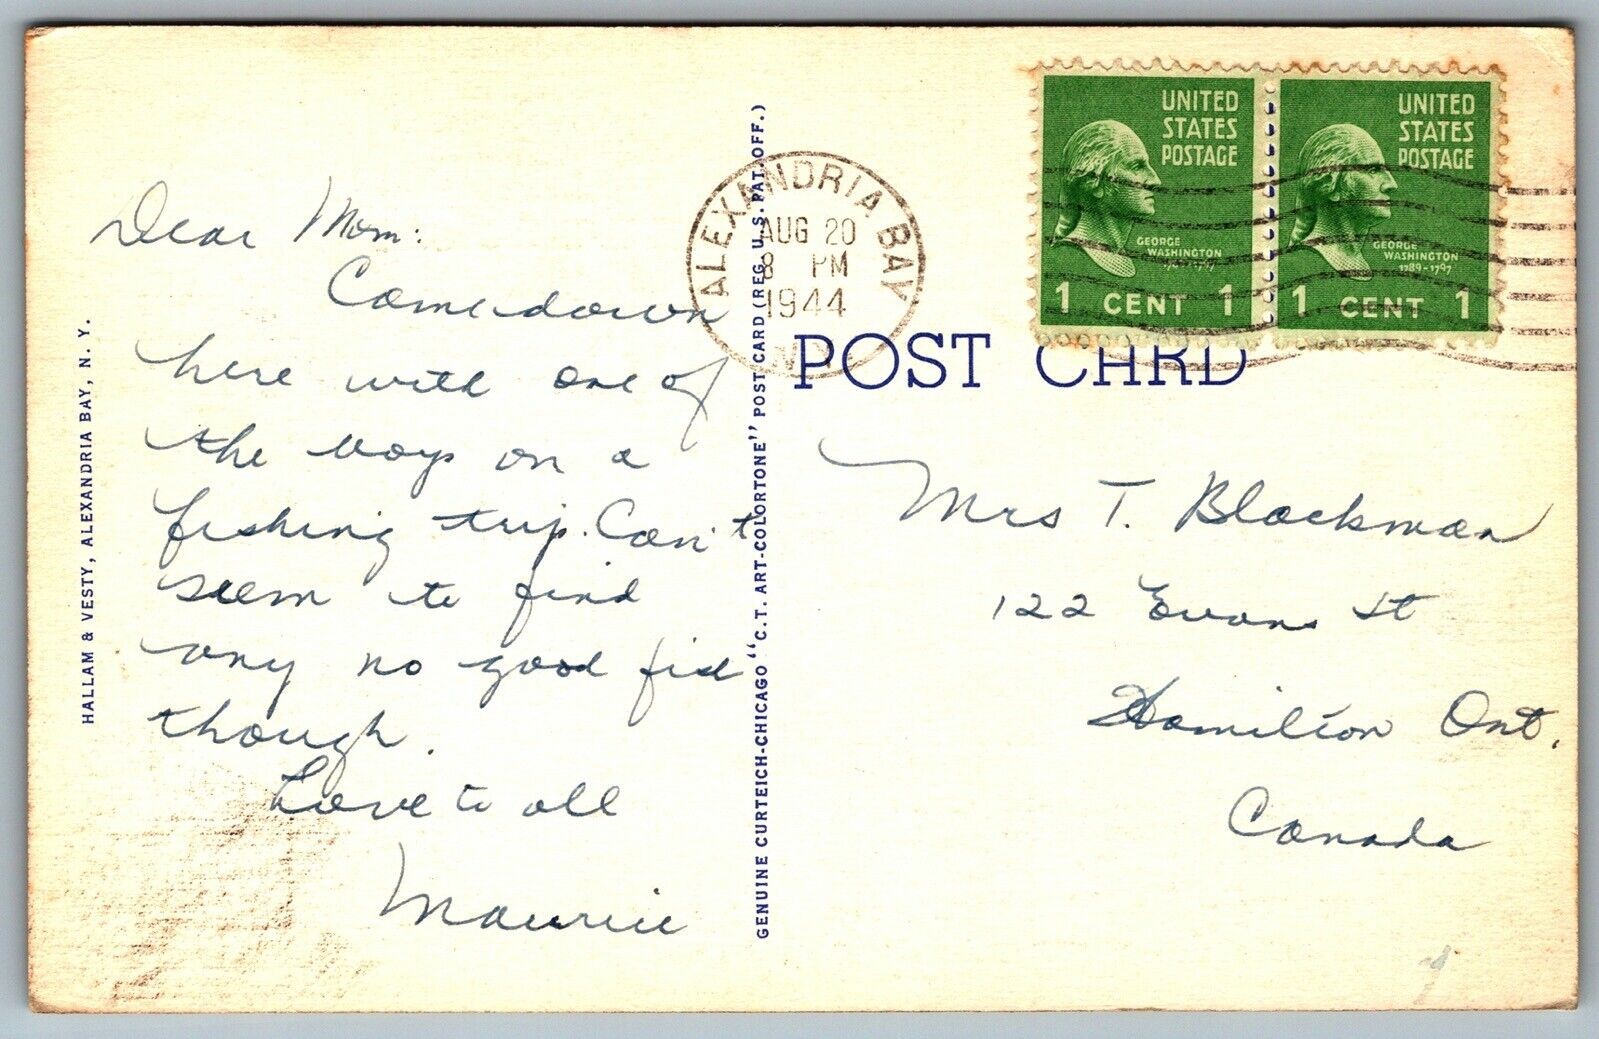 Dear Mom:
Come down
here with one of
the boys on a
fishing trip. Can't
seem to find
any no good fish
though.
Love to all
Maurice
HALLAM & VESTY, ALEXANDRIA BAY, N. Y.
GENUINE CURTEICH-CHICAGO "C.T. ART-COLORTONE" POST CARD (REG. U.S. PAT. OFF.)
ALEXANDRIA BAY
AUG 20
8 PM
1944
N.Y.
UNITED
STATES
POSTAGE
GEORGE
WASHINGTON
1789-1797
1 CENT 1
UNITED
STATES
POSTAGE
GEORGE
WASHINGTON
1789-1797
1 CENT 1
POST CARD
Mrs T. Blackman
122 Evans St
Hamilton Ont.
Canada